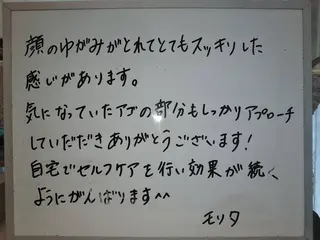 顔のゆがみがとれてとてもスッキリした
感じがあります。
気になっていたアゴの部分もしっかりアプローチ
していただきありがとうございます!
自宅でセルフケアを行い効果が続く
ようにがんばります^^
モリタ